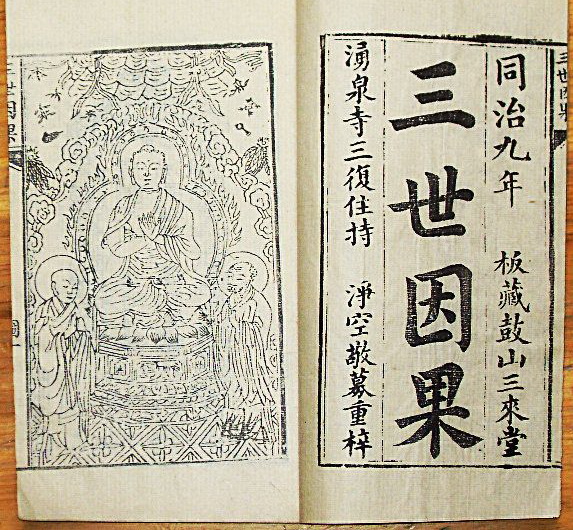 同治九年 板藏鼓山三來堂
三世因果
湧泉寺三復住持 淨空敬募重梓
三世因果
三世因果